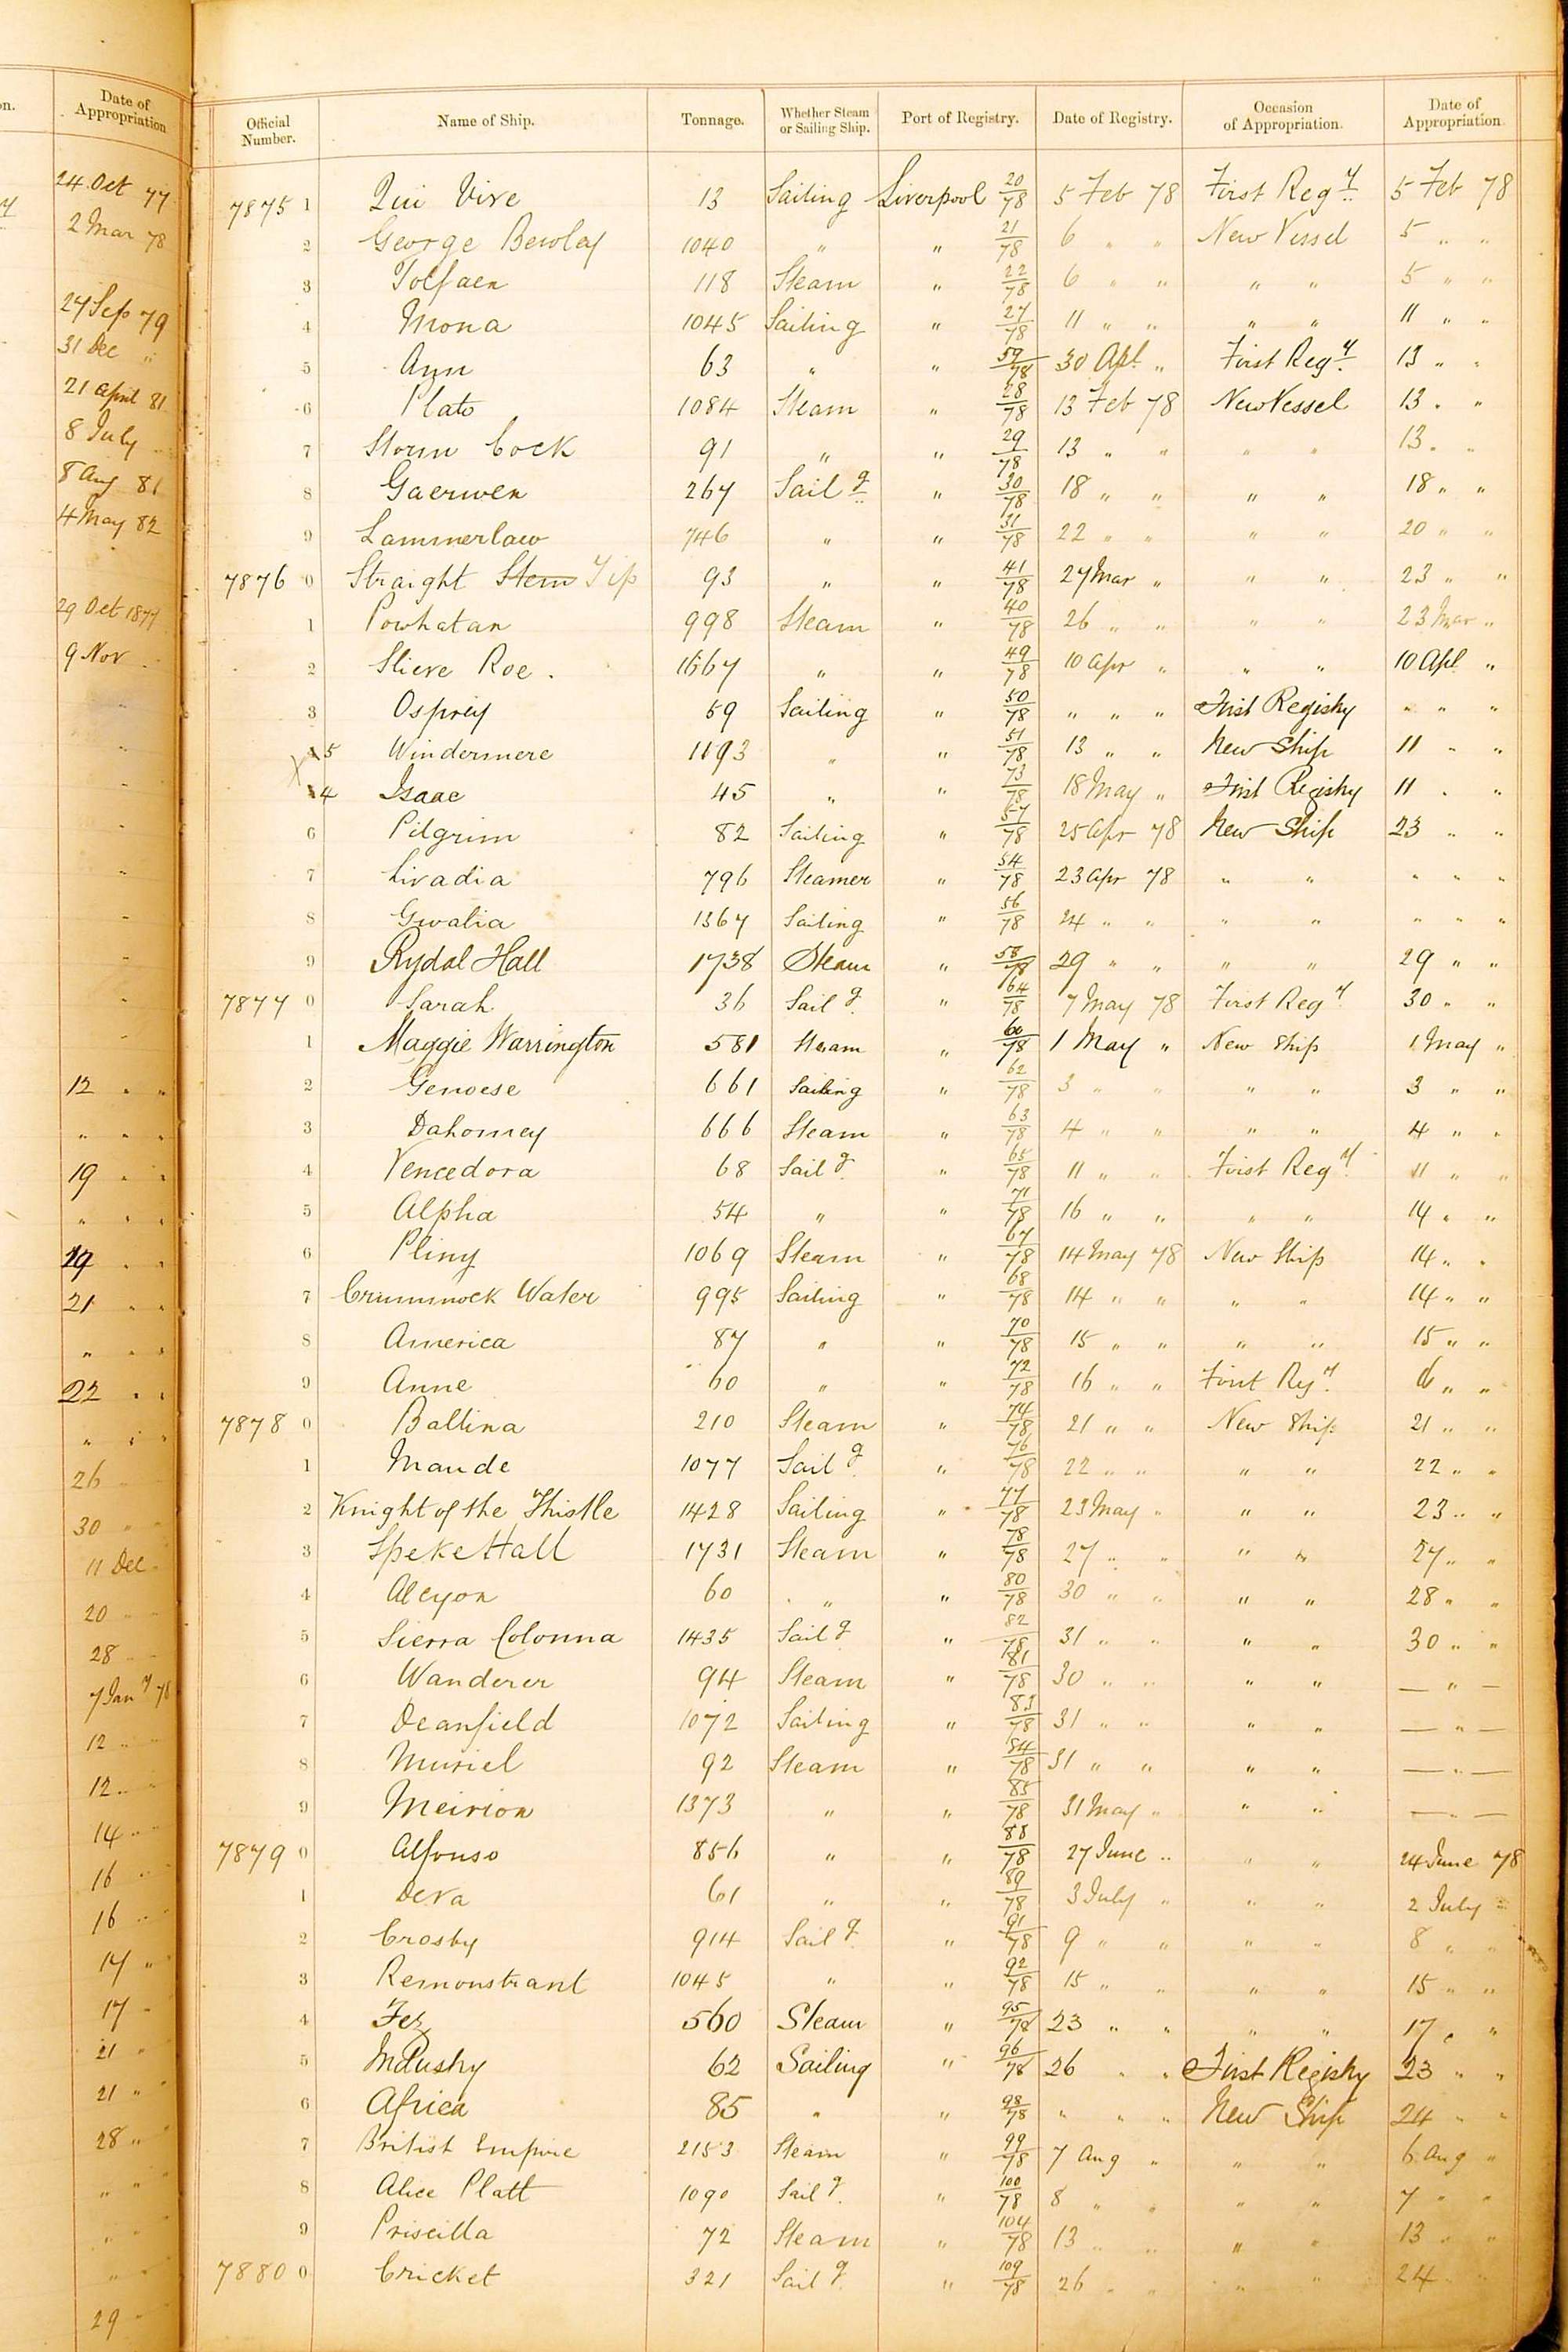 on.
Date of Appropriation
24 Oct 77
2 Mar 78
27 Sep 79
31 Dec "
21 April 81
8 July "
8 Aug 81
4 May 82
29 Oct 1877
9 Nov "
12 " "
" " "
19 " "
" " "
19 " "
21 " "
" " "
22 " "
" " "
26 "
30 " "
11 Dec "
20 " "
28 " "
7 Jany 78
12 " "
12 " "
14 " "
16 "
16 "
17 "
17 "
21 "
21 "
28 "
" "
" "
" "
29 "
Official Number. Name of Ship. Tonnage. Whether Steam or Sailing Ship. Port of Registry. Date of Registry. Occasion of Appropriation. Date of Appropriation.
7875 1 Qui Vive 13 Sailing Liverpool 20/78 5 Feb 78 First Regy 5 Feb 78
2 George Bewley 1040 " " 21/78 6 " " New Vessel 5 " "
3 Tolfaen 118 Steam " 22/78 6 " " " " 5 " "
4 Mona 1045 Sailing " 27/78 11 " " " " 11 " "
5 Ann 63 " " 59/78 30 Apl " First Regy 13 " "
6 Plato 1084 Steam " 28/78 13 Feb 78 New Vessel 13 " "
7 Storm Cock 91 " " 29/78 13 " " " " 13 " "
8 Gaerwen 267 Sailg " 30/78 18 " " " " 18 " "
9 Lammerlaw 746 " " 31/78 22 " " " " 20 " "
7876 0 Straight Stem Tip 93 " " 41/78 27 Mar " " " 23 " "
1 Powhatan 998 Steam " 40/78 26 " " " " 23 Mar "
2 Slieve Roe. 1667 " " 49/78 10 Apr " " " 10 Apl "
3 Osprey 59 Sailing " 50/78 " " " First Registry " " "
5 Windermere 1193 " " 51/78 13 " " New Ship 11 " "
4 Isaac 45 " " 73/78 18 May " First Registry 11 " "
6 Pilgrim 82 Sailing " 57/78 25 Apr 78 New Ship 23 " "
7 Livadia 796 Steamer " 54/78 23 Apr 78 " " " " "
8 Gwalia 1367 Sailing " 56/78 24 " " " " " " "
9 Rydal Hall 1738 Steam " 58/78 29 " " " " 29 " "
7877 0 Sarah 36 Sailg " 64/78 7 May 78 First Regy 30 " "
1 Maggie Warrington 581 Steam " 60/78 1 May " New Ship 1 May "
2 Genoese 661 Sailing " 62/78 3 " " " " 3 " "
3 Dahomey 666 Steam " 63/78 4 " " " " 4 " "
4 Vencedora 68 Sailg " 65/78 11 " " First Regy 11 " "
5 Alpha 54 " " 71/78 16 " " " " 14 " "
6 Pliny 1069 Steam " 67/78 14 May 78 New Ship 14 " "
7 Crummock Water 995 Sailing " 68/78 14 " " " " 14 " "
8 America 87 " " 70/78 15 " " " " 15 " "
9 Anne 60 " " 72/78 16 " " First Regy " "
7878 0 Ballina 210 Steam " 74/78 21 " " New Ship 21 " "
1 Maude 1077 Sailg " 76/78 22 " " " " 22 " "
2 Knight of the Thistle 1428 Sailing " 77/78 23 May " " " 23 " "
3 Speke Hall 1731 Steam " 78/78 27 " " " " 27 " "
4 Alcyon 60 " " 80/78 30 " " " " 28 " "
5 Sierra Colonna 1435 Sailg " 82/78 31 " " " " 30 " "
6 Wanderer 94 Steam " 81/78 30 " " " " — " —
7 Deanfield 1072 Sailing " 83/78 31 " " " " — " —
8 Muriel 92 Steam " 84/78 31 " " " " — " —
9 Meirion 1373 " " 85/78 31 May " " " — " —
7879 0 Alfonso 856 " " 88/78 27 June " " " 24 June 78
1 Deva 61 " " 89/78 3 July " " " 2 July "
2 Crosby 914 Sailg " 91/78 9 " " " " 8 " "
3 Remonstrant 1045 " " 92/78 15 " " " " 15 " "
4 Fez 560 Steam " 95/78 23 " " " " 17 " "
5 Industry 62 Sailing " 96/78 26 " " First Registry 23 " "
6 Africa 85 " " 98/78 " " " New Ship 24 " "
7 British Empire 2153 Steam " 99/78 7 Aug " " " 6 Aug "
8 Alice Platt 1090 Sailg " 100/78 8 " " " " 7 " "
9 Priscilla 72 Steam " 104/78 13 " " " " 13 " "
7880 0 Cricket 321 Sailg " 109/78 26 " " " " 24 " "